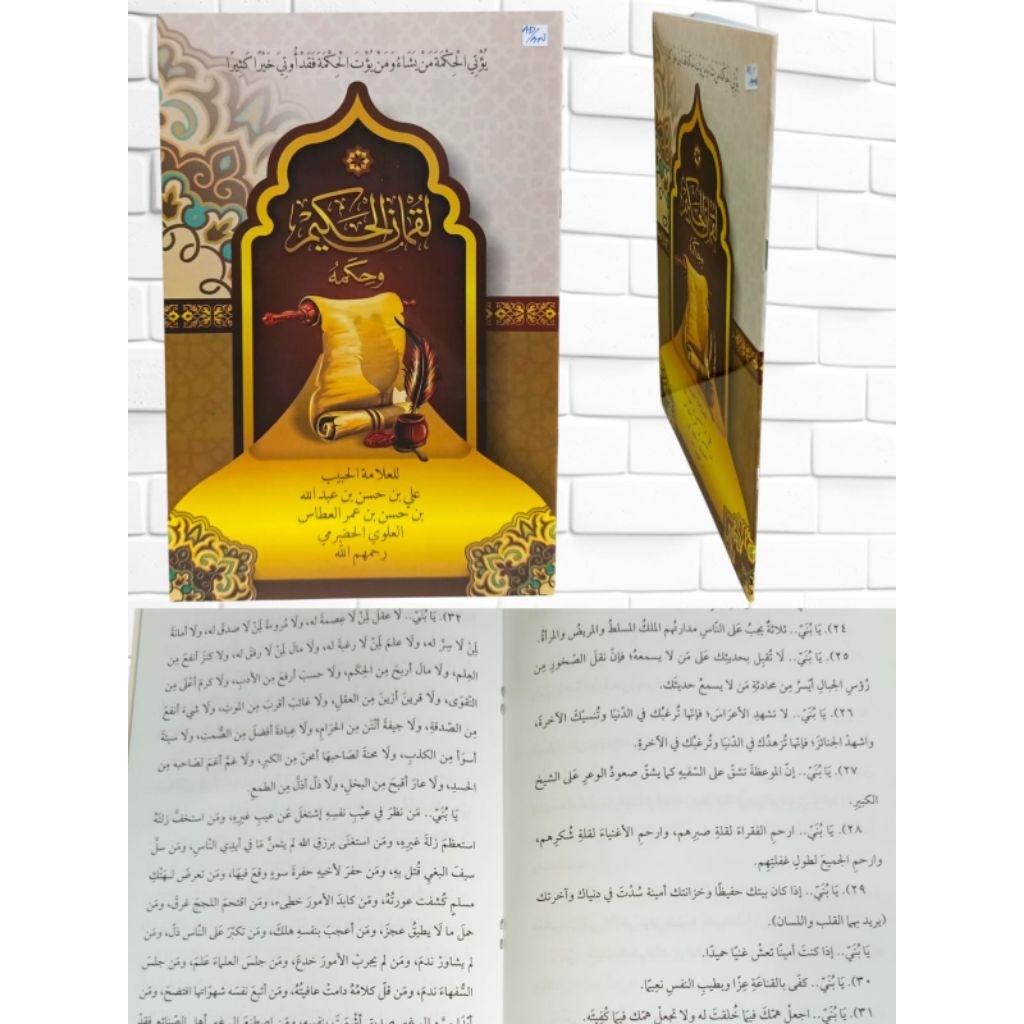 يُؤْتِي الْحِكْمَةَ مَنْ يَشَاءُ وَمَنْ يُؤْتَ الْحِكْمَةَ فَقَدْ أُوتِيَ خَيْرًا كَثِيرًا
لُقْمَانُ الْحَكِيمُ
وَحِكَمُهُ
للعلامة الحبيب
علي بن حسن بن عبد الله
بن حسن بن عمر العطاس
العلوي الحضرمي
رحمهم الله
٢٤). يَا بُنَيّ.. ثلاثةٌ يجبُ عَلى النّاسِ مدارتُهم الملكُ المسلطُ والمريضُ والمرأةُ.
٢٥). يَا بُنَيّ.. لَا تُقبِل بحديثِك عَلى مَن لَا يسمعهُ؛ فإنّ نقلَ الصّخورِ مِن
رُؤسِ الجبالِ أيْسرُ مِن محادثةِ مَن لا يسمعُ حديثَك.
٢٦). يَا بُنَيّ.. لا تشهدِ الأعراسَ؛ فإنّها تُرغبُك في الدّنيَا وتُنسيْكَ الآخرةَ،
واشهدِ الجنائزَ؛ فإنّها تُزهدُك في الدّنيَا وتُرغبُك في الآخرةِ.
٢٧). يَا بُنَيّ.. إنّ الموعظةَ تشقّ على السّفيهِ كما يشقّ صعودُ الوعرِ عَلى الشيخ
الكبيرِ.
٢٨). يَا بُنَيّ.. ارحمِ الفقراءَ لقلةِ صبرِهم، وارحمِ الأغنياءَ لقلةِ شُكرِهم،
وارحمِ الجميعَ لطولِ غفلتِهم.
٢٩). يَا بُنَيّ.. إذا كان بيتك حفيظًا وخزانتك أمينة سُدْتَ في دنياك وآخرتك
(يريد بهما القلب واللسان).
يَا بُنَيّ.. إذا كنتَ أمينًا تعشْ غنيًا حميدًا.
٣٠). يَا بُنَيّ.. كفَى بالقناعَةِ عِزًا وبطيبِ النفسِ نعِيمًا.
٣١). يَا بُنَيّ.. اجعلْ همّكَ فيمَا خُلقتَ له ولا تجعلْ همّك فيمَا كُفِيتَه.
٣٢). يَا بُنَيّ.. لَا عقلَ لِمَنْ لَا عِصمةَ له، ولَا مُروءةَ لِمَنْ لَا صدقَ له، ولَا أمانةَ
لِمَنْ لَا سِرّ له، ولَا علمَ لِمَنْ لَا رغبةَ له، ولَا مالَ لِمَنْ لَا رفقَ له، ولَا كنزَ أنفعَ مِن
العِلم، ولَا مالَ أربحَ مِن الحِكَم، ولَا حسبَ أرفعَ مِن الأدبِ، ولَا كرمَ أعلَى مِن
التّقوَى، ولَا قرينَ أزينَ مِن العقلِ، ولَا غائبَ أقربَ مِن الموتِ، ولَا شيءَ أنفعَ
مِن الصّدقةِ، ولَا جيفةَ أنْتَن مِن الحَرامِ، ولَا عِبادةَ أفضلَ مِن الصّمتِ، ولَا سيئةَ
أسوأَ مِن الكذبِ، ولَا محنةَ لصاحبِهَا أمحنَ مِن الكبرِ، ولَا غمَّ أغمَّ لصَاحبِه مِن
الحسدِ، ولَا عارَ أقبحَ مِن البخلِ، ولَا ذلّ أذلّ مِن الطمعِ.
يَا بُنَيّ.. مَن نظرَ في عيْبِ نفسِهِ إشتغلَ عَن عيبِ غيرِهِ، ومَن استخفّ زلتَهُ
استعظمَ زلةَ غيرِهِ، ومَن استغنَى برزقِ الله لم يتمنَّ مَا في أيدِي النّاسِ، ومَن سلَّ
سيفَ البغيِ قُتل بهِ، ومَن حفرَ لأخيهِ حفرةَ سوءٍ وقعَ فيهَا، ومَن تعرضَ لهتكِ
مسلمٍ كُشفت عورتُهُ، ومَن كابدَ الأمورَ خطِىءَ، ومَن اقتحمَ اللججَ غرقَ، ومَن
حملَ ما لَا يطيقُ عجزَ، ومَن أعجبَ بنفسِهِ هلكَ، ومَن تكبّرَ عَلى النّاسِ ذلّ، ومَن
لم يشاورْ ندمَ، ومَن لم يجربْ الأمورَ خدعَ، ومَن جلسَ العلماءَ عَلمَ، ومَن جلسَ
السُّفهاءَ ندمَ، ومَن قلّ كلامُهُ دامتْ عافيتُهُ، ومَن أتبعَ نفسَه شهوَاتِها افتضحَ، ومَن